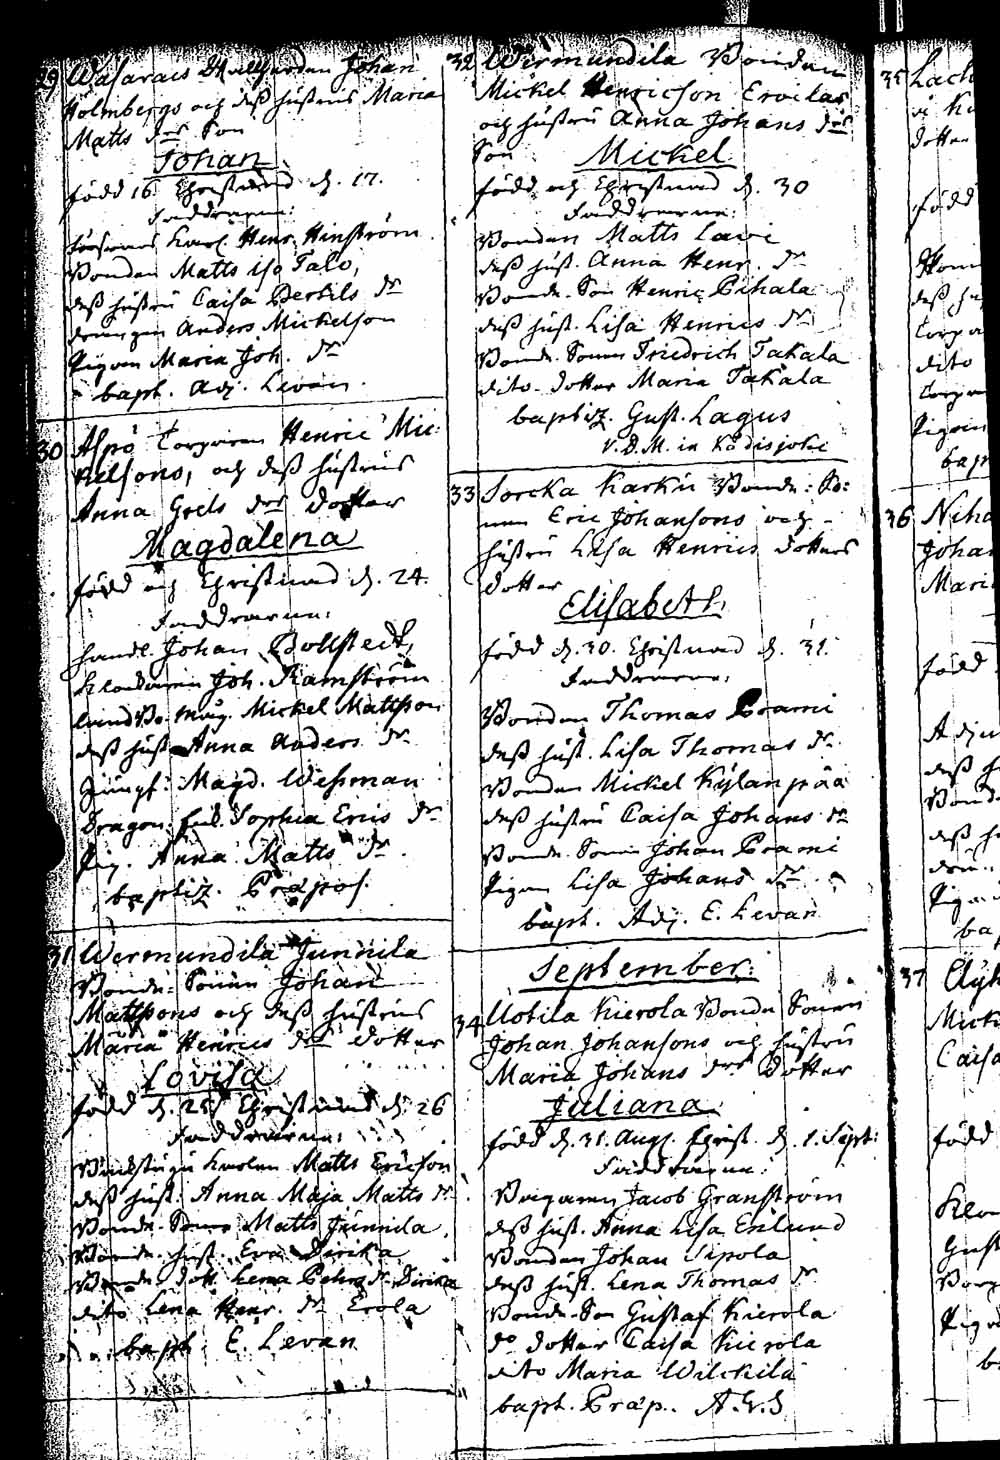 29 Wasarais Johan
Holmbergs och deß hustrus Maria
Matts drs Son
Johan
född 16 Christnad d. 17.
Faddrarne:
Karl Henr. Hinström
Bonden Matts iso Talo,
deß hustru Caisa Bertils dr
drängen Anders Mickelson
Pigan Maria Joh. dr
bapt. Adj. Levan.
30 Aspö Torparen Henric Mic-
kelsons, och deß hustrus
Anna Grels drs dotter
Magdalena
född och Christnad d. 24.
Faddrarne:
handl. Johan Bollstedt,
Klockaren Joh. Ramström
Mickel Mattson
deß hust. Anna Anders dr
Jungf. Magd. Weßman
Dragon. Sophia Erics dr
Pig. Anna Matts dr
baptiz. Præpos.
31 Wermundila Junnila
Bonde-Sonen Johan
Mattsons och deß hustrus
Maria Henrics drs dotter
Lovisa
född d. 25 Christnad d. 26
Faddrarne:
Matts Ericson
deß hust. Anna Maja Matts dr
Bonde-Sonen Matts Junnila
Bonde. hust. Eva Dirika
Bonde dott. Lena Pehrs dr Dirika
dito Lena Henr. dr Erola
bapt. E. Levan
32 Wermundila Bonden
Mickel Henricson Erolas
och hustru Anna Johans drs
Son Mickel
född och Christnad d. 30
Faddrarne:
Bonden Matts Lavi
deß hust. Anna Henr. dr
Bonde-Son Henric Pihala
deß hust. Lisa Henrics dr
Bonde-Sonen Friedrich Takala
dito dotter Maria Takala
baptiz. Gust. Lagus
V.D.M. in Kådisjoki
33 Sorcka Karku Bonde-So-
nen Eric Johansons och
hustru Lisa Henrics dotters
dotter
Elisabeth
född d. 30. Christnad d. 31.
Faddrarne:
Bonden Thomas Prami
deß hust. Lisa Thomas dr
Bonden Mickel Kylänpää
deß hustru Caisa Johans dr
Bonde-Sonen Johan Prami
Pigan Lisa Johans dr
bapt. Adj. E. Levan
September
34 Uotila Kierola Bonde Sonen
Johan Johansons och hustru
Maria Johans drs Dotter
Juliana
född d. 31. Aug. Christ. d. 1. Sept:
Faddrarne:
Jacob Granström
deß hust. Anna Lisa Enlund
Bonden Johan Sipola
deß hust. Lena Thomas dr
Bonde-Son Gustaf Kierola
do dotter Caisa Kierola
dito Maria Wilckila
bapt. Præp. A.
35 Lach
dotter
född
deß hu
Torpa
dito
Torpa
Pigan
bap
36 Niha
Johan
Mari
född
Adju
deß h
Bond
deß h
Pigan
ba
37
Mick
Caisa
född
Klo
Gust
Pig
b